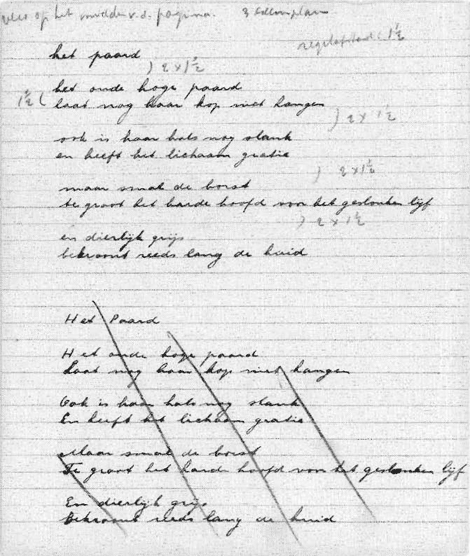 vlees op het midden v.d. pagina. 3 exemplaren
regelafstand: 1½
het paard
) 2 x 1½
het oude hoge paard
1½ (
laat nog haar kop niet hangen
) 2 x 1½
ook is haar hals nog slank
en heeft het lichaam gratie
) 2 x 1½
maar smal de borst
te groot het harde hoofd voor het geslonken lijf
) 2 x 1½
en dierlijk grijs
bekroont reeds lang de huid
Het Paard
Het oude hoge paard
Laat nog haar kop niet hangen
Ook is haar hals nog slank
En heeft het lichaam gratie
Maar smal de borst
Te groot het harde hoofd voor het geslonken lijf
En dierlijk grijs
Bekroont reeds lang de huid